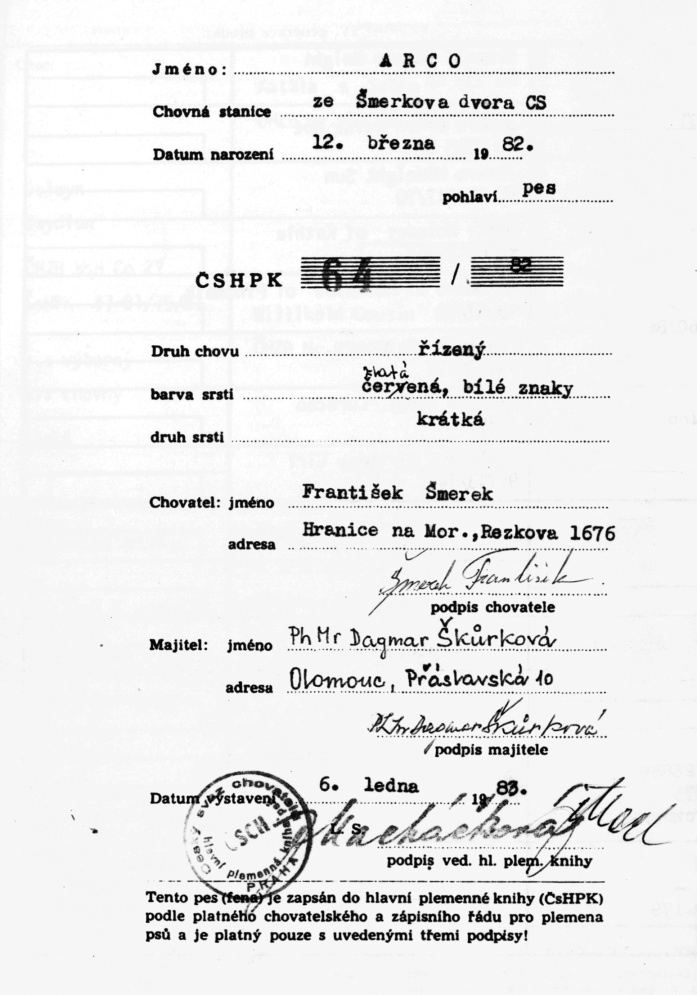 Jméno: ARCO
Chovná stanice ze Šmerkova dvora CS
Datum narození 12. března 19 82.
pohlaví pes
ČSHPK 64 / 82
Druh chovu řízený
zlatá
barva srsti červená, bílé znaky
druh srsti krátká
Chovatel: jméno František Šmerek
adresa Hranice na Mor.,Rezkova 1676
Šmerek František
podpis chovatele
Majitel: jméno PhMr Dagmar Škůrková
adresa Olomouc, Přáslavská 10
PhMr Dagmar Škůrková
podpis majitele
Datum vystavení 6. ledna 19 83.
L. S.
Český svaz chovatelů
ČSCH
hlavní plemenné knihy
PRAHA
podpis ved. hl. plem. knihy
Tento pes (fena) je zapsán do hlavní plemenné knihy (ČsHPK)
podle platného chovatelského a zápisního řádu pro plemena
psů a je platný pouze s uvedenými třemi podpisy!